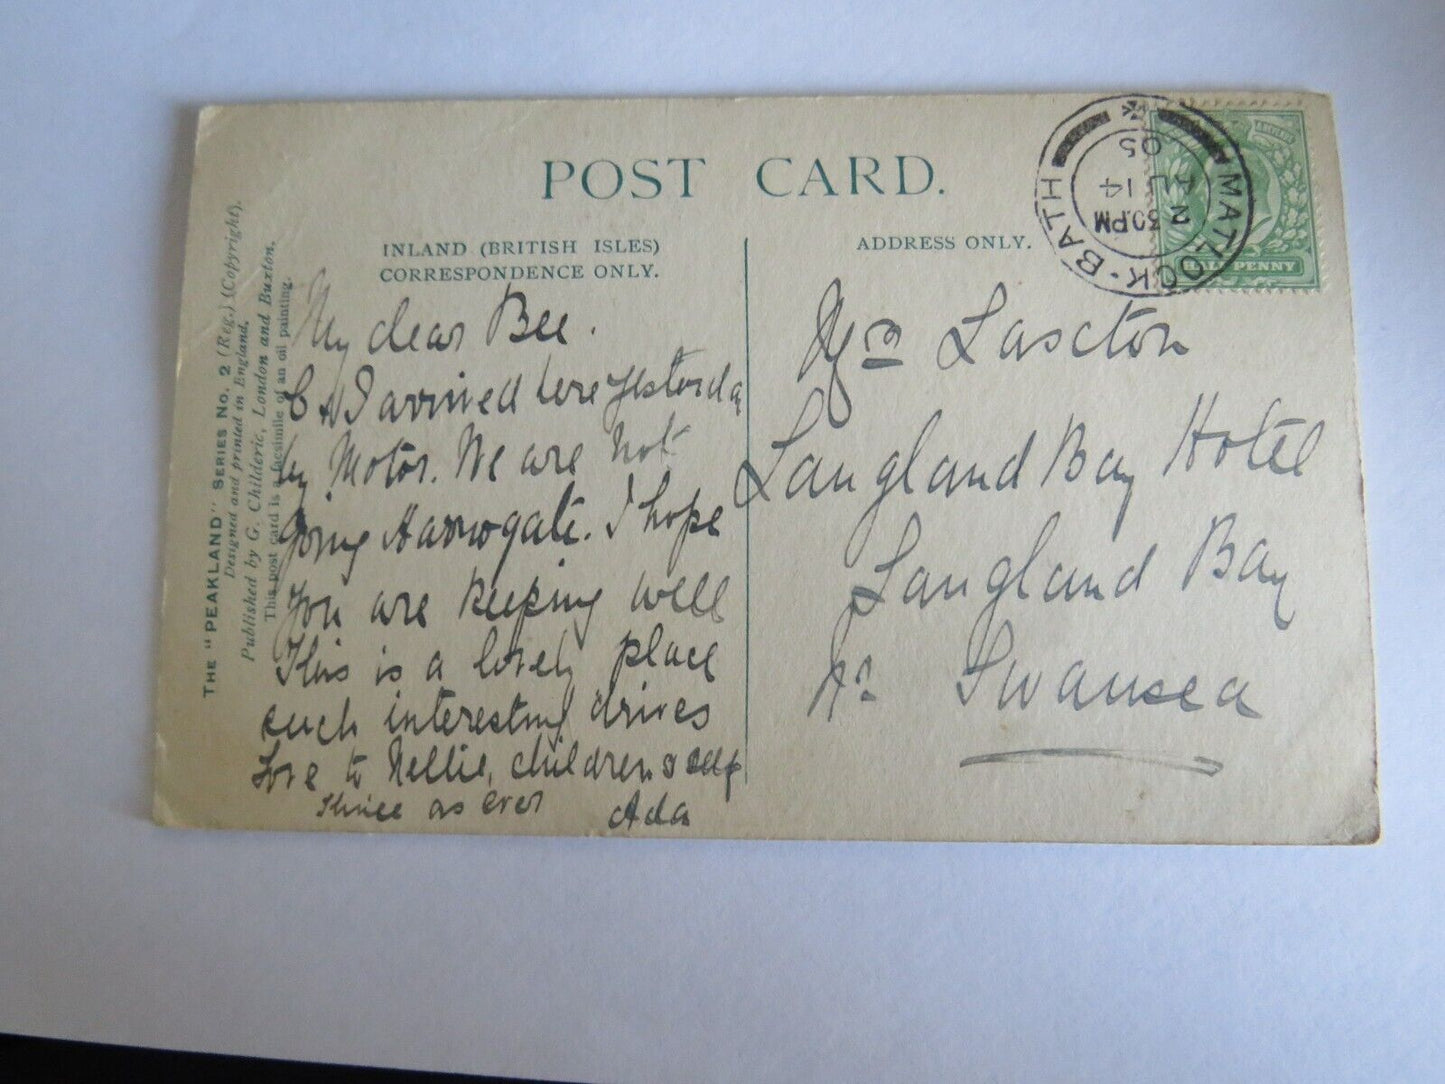 POST CARD.
INLAND (BRITISH ISLES)
CORRESPONDENCE ONLY.
ADDRESS ONLY.
MATLOCK · BATH
2 30.PM
JL 14
05
HALF PENNY
THE "PEAKLAND" SERIES No. 2 (Reg.) (Copyright).
Designed and printed in England.
Published by G. Childeric, London and Buxton.
This post card is a facsimile of an oil painting.
My dear Bee.
C & I arrived here yesterday
by Motor. We are not
going Harrogate. I hope
you are keeping well
This is a lovely place
such interesting drives
Love to Nellie, children & self
Thine as ever
Ada
Mrs
Langland Bay Hotel
Langland Bay
Nr Swansea